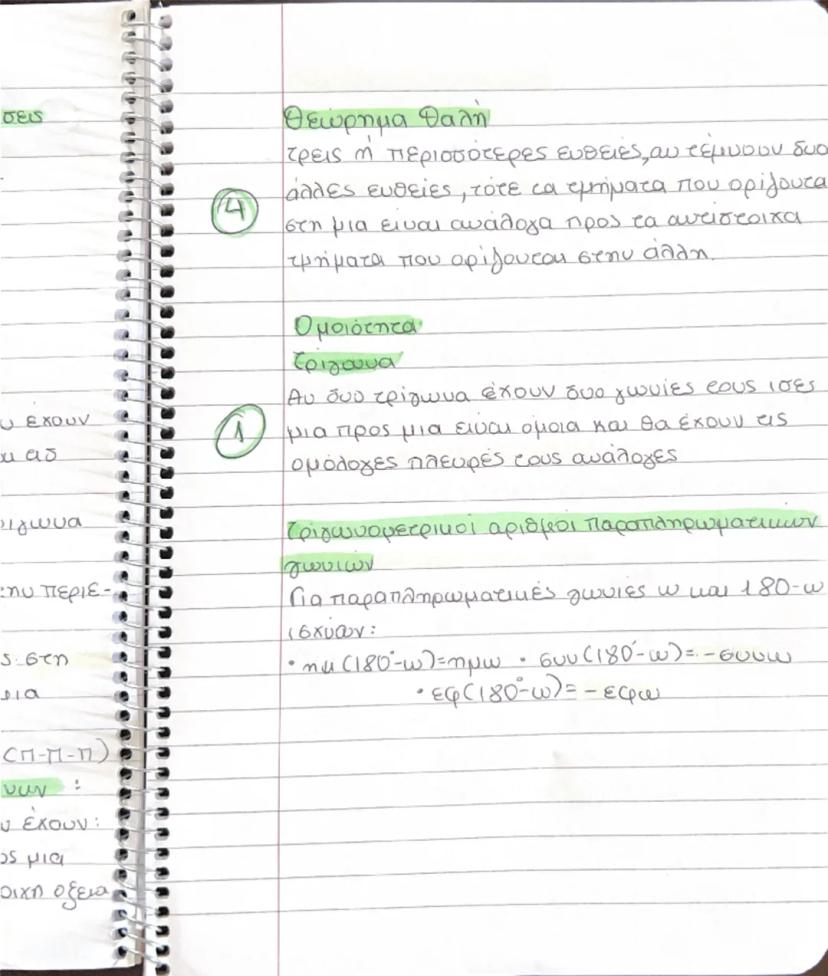 σεις
υ έχουν
ιγωνα
ην περιε-
ς στη
(Π-Π-Π)
νων :
υ έχουν:
ος μια
οιχη οξεια
Θεώρημα Θαλή
τρεις ή περισσότερες ευθειές, αν τέμνουν δυο
④ άλλες ευθείες, τότε τα τμήματα που ορίζοντα
στη μια είναι ανάλογα προς τα αντίστοιχα
τμήματα που ορίζονται στην άλλη.
Ομοιότητα
τρίγωνα
Αν δυο τρίγωνα έχουν δυο γωνίες τους ισες
① μια προς μια ειναι ομοια και θα έχουν τις
ομόλογες πλευρές τους ανάλογες
Τριγωνομετρικοί αριθμοί παραπληρωματικών
γωνιών
Για παραπληρωματικές γωνίες ω και 180-ω
ισχύουν:
• ημ(180°-ω)=ημω • συν(180°-ω)= -συνω
• εφ(180°-ω)= -εφω